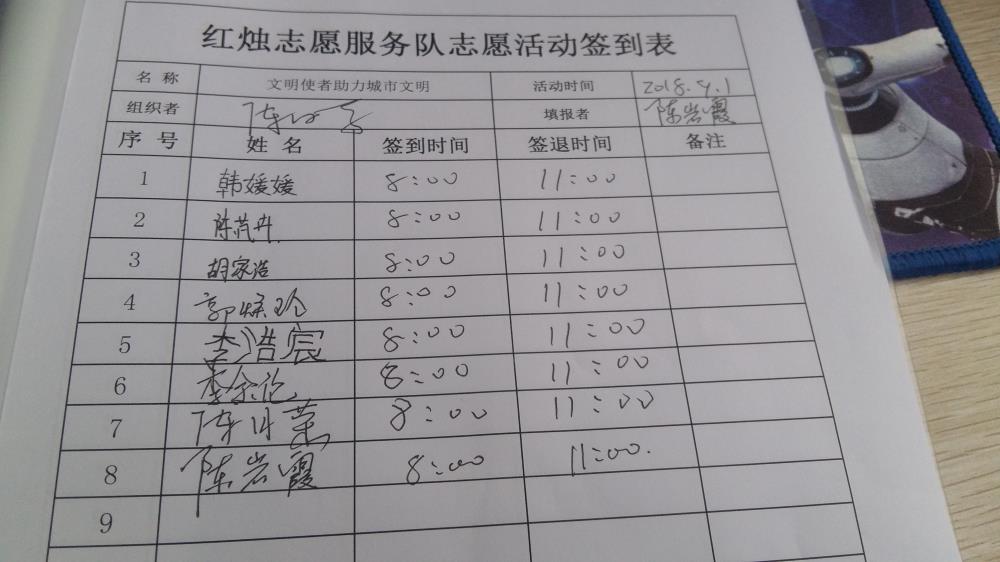 红烛志愿服务队志愿活动签到表
名 称 文明使者助力城市文明 活动时间 2018.9.1
组织者 填报者 陈岩霞
序 号 姓 名 签到时间 签退时间 备注
1 韩媛媛 8:00 11:00
2 陈 8:00 11:00
3 胡家浩 8:00 11:00
4 郭 8:00 11:00
5 李浩宸 8:00 11:00
6 李 8:00 11:00
7 陈 8:00 11:00
8 陈岩霞 8:00 11:00.
9